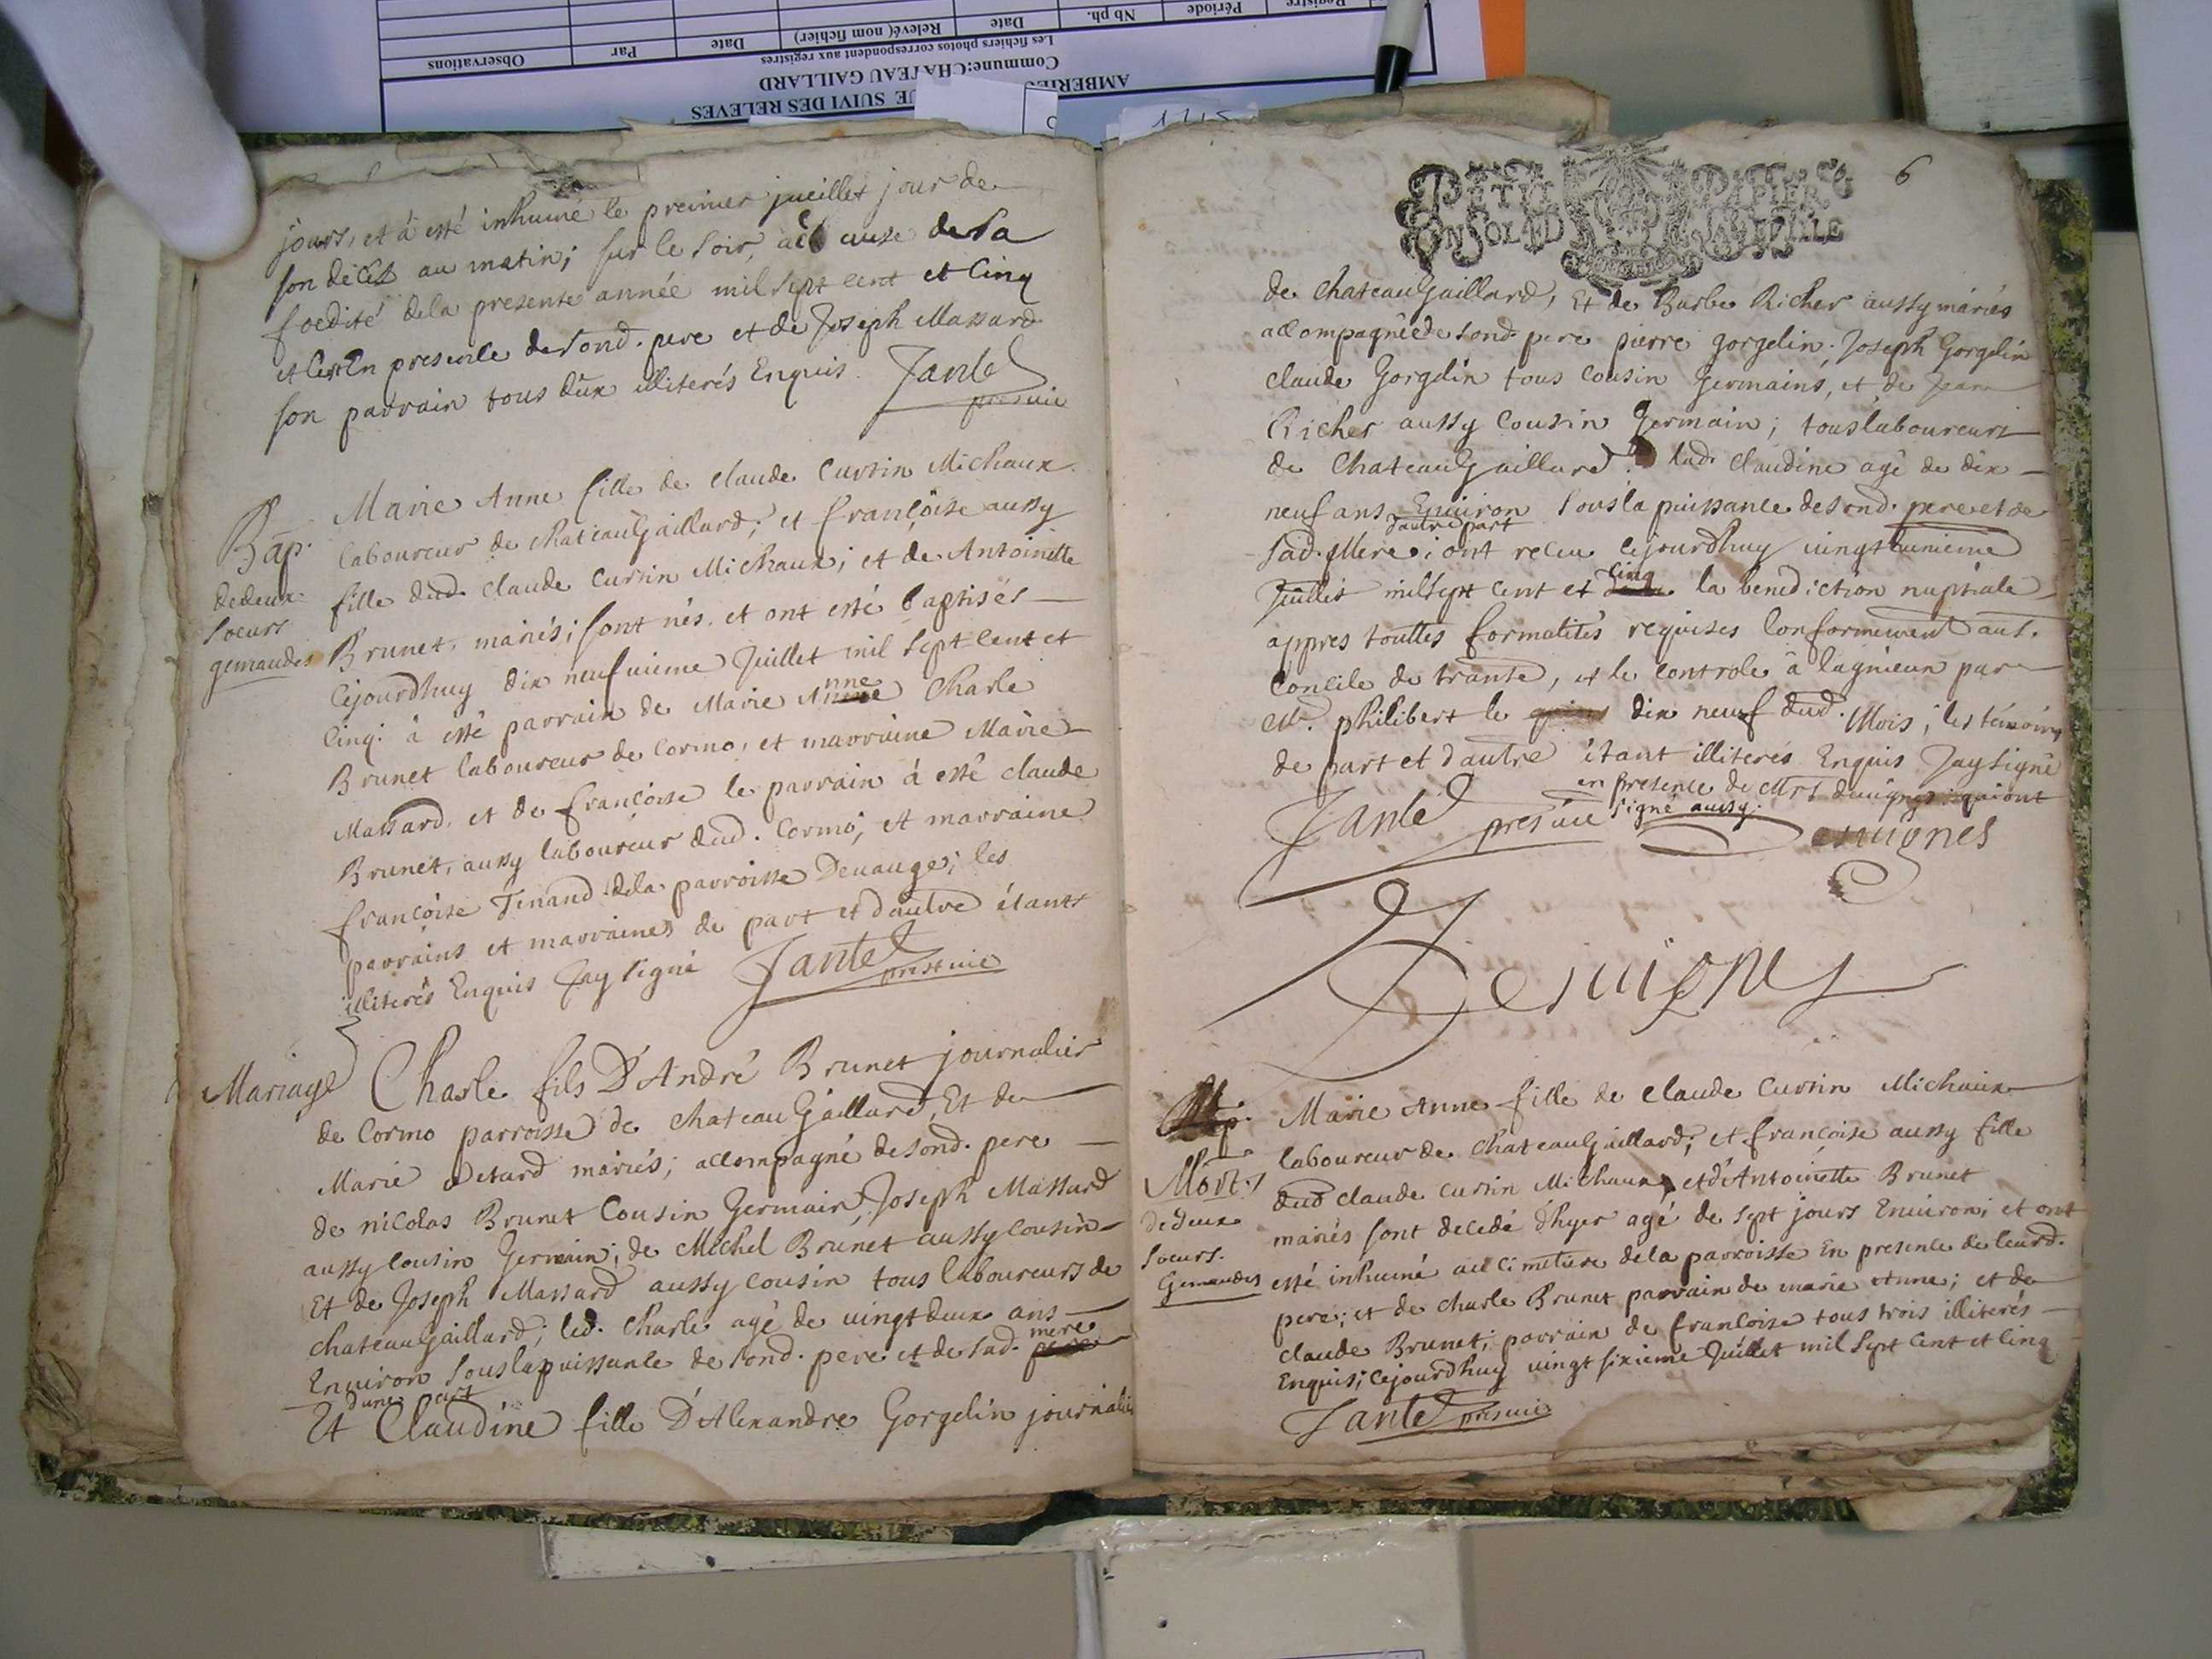 Observations
Par
Date
Relevé( nom fichier)
Date
Nb ph.
Période
Registre
Les fichiers photos correspondent aux registres
Commune:CHATEAU GAILLARD
AMBERIE
UE SUIVI DES RELEVES
jours, et à esté inhumé le premier jueillet jour de
son décés au matin; sur le soir, à cause de la
foedité dela presente année mil sept cent et cinq
et ce En presence de sond. pere et de Joseph Massard
son parrain tous dûx illiterés Enquis Jantel
pres vic
Bap.
dedeux
soeurs
gemaudes
Marie Anne fille de claude Curtin Michaux
laboureur de chateauGaillard; et françoise aussy
fille dud. claude curtin Michaux; et de Antoinette
Brunet, mariés; sont nés, et ont esté baptisés
cejourdhuy dix neufuieme Juillet mil sept cent et
cinq. à esté parrain de Marie Anne Charle
Brunet laboureur de Cormo, et marraine Marie
Massard, et de françoise le parrain à esté claude
Brunet, aussy laboureur dud. Cormo; et marraine
françoise Tenand dela parroisse Deuauge; les
parrains et marraines de part et dautre étants
illiterés Enquis Jay signé Jantel
prest vic
Mariage
Charle fils D'André Brunet journalier
de Cormo parroisse de chateauGaillard, Et de
Marie Detard mariés; accompagné desond. pere
de nicolas Brunet Cousin Germain, Joseph Massard
aussy cousin Germain; de Michel Brunet aussy cousin
Et de Joseph Massard aussy cousin tous laboureurs de
chateauGaillard; led. Charle agé de vingt deux ans
Enuiron souslapuissance de sond. pere et de sad. mere
dune part
Et Claudine fille D'Alexandre Gorgelin journalier
6
PETIT PAPIER
EN SOL LD
de chateauGaillard, Et de Barbe Richer aussy mariés
accompagnéede sond. pere pierre gorgelin, Joseph Gorgelin
claude Gorgelin tous cousin Germains, et de Jean
Richer aussy Cousin Germain; touslaboureurs
de ChateauGaillard. lad. claudine agé de dix
neuf ans Enuiron Sousla puissance desond. pereetde
dautre part
sad. Mere; ont receu cejourdhuy vingtunieme
Juillet milsept cent et cinq la benediction nuptiale
appres touttes formalités requises conformement au S.
Concile de trante, et le controle à lagnieux par
Mr. philibert le dix neuf dud. Mois; les témoins
de part et dautre étant illiterés Enquis Jay signé
en presence de Mrs deuignes quiont
signé aussy.
Jantel pres vic
esuignes
Desuignes
Bap.
Mort.s
dedeux
soeurs.
Gemaudes
Marie Anne fille de claude Curtin Michaux
laboureur de chateauGaillard; et françoise aussy fille
dud claude curtin Michaux, etd'Antoinette Brunet
mariés sont decedé d'hyer agé de sept jours Enuiron; et ont
esté inhumé au cimetiere dela parroisse En presence de leurd.
pere; et de charle Brunet parrain de marie Anne; et de
claude Brunet; parrain de françoise tous trois illiterés
Enquis; cejourdhuy vingt sixieme Juillet mil sept cent et cinq
Jantel presvic